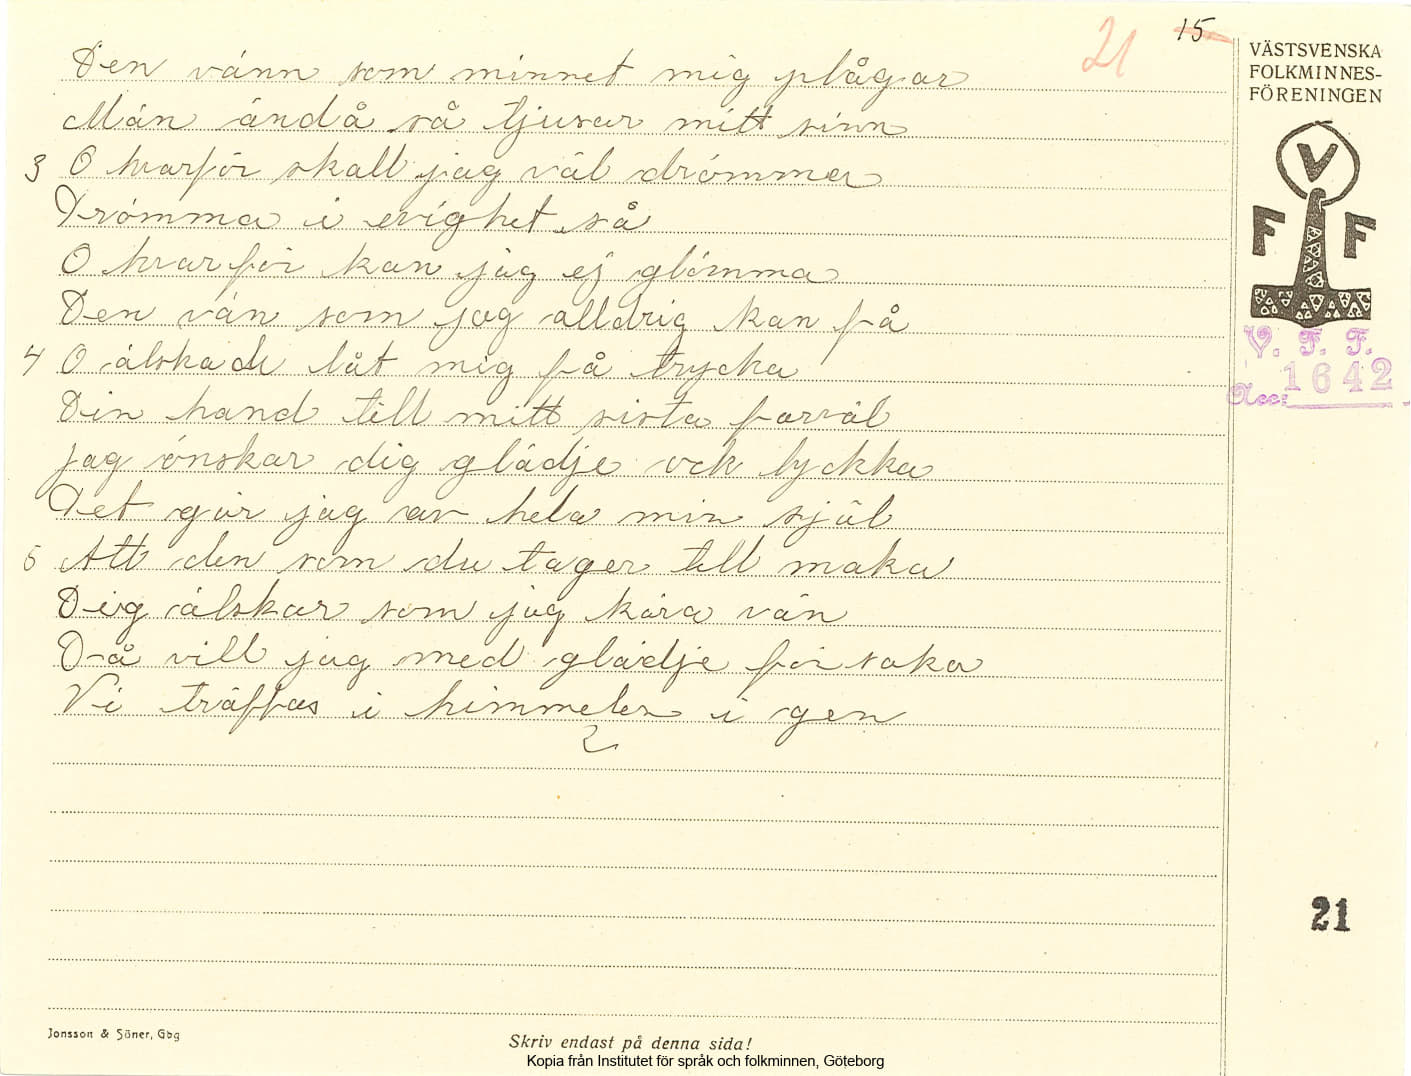 21 15
Den vänn som minnet mig plågar
Män ändå så tjusar mitt sinn
3 O hvarför skall jag väl drömmer
Drömma i evighet så
O hvarför kan jag ej glömma
Den vän som jag alldrig kan få
4 O älskade låt mig få trycka
Din hand till mitt sista farväl
Jag önskar dig glädje ock lyckka
Det gjör jag av hela min själ
5 Att den som du tager till maka
Dig älskar som jag kära vän
Då vill jag med glädje försaka
Vi träffas i himmelen i gen
VÄSTSVENSKA
FOLKMINNES-
FÖRENINGEN
V
F F
V. F. F.
Acc: 1642
21
Jonsson & Söner, Gbg
Skriv endast på denna sida!
Kopia från Institutet för språk och folkminnen, Göteborg